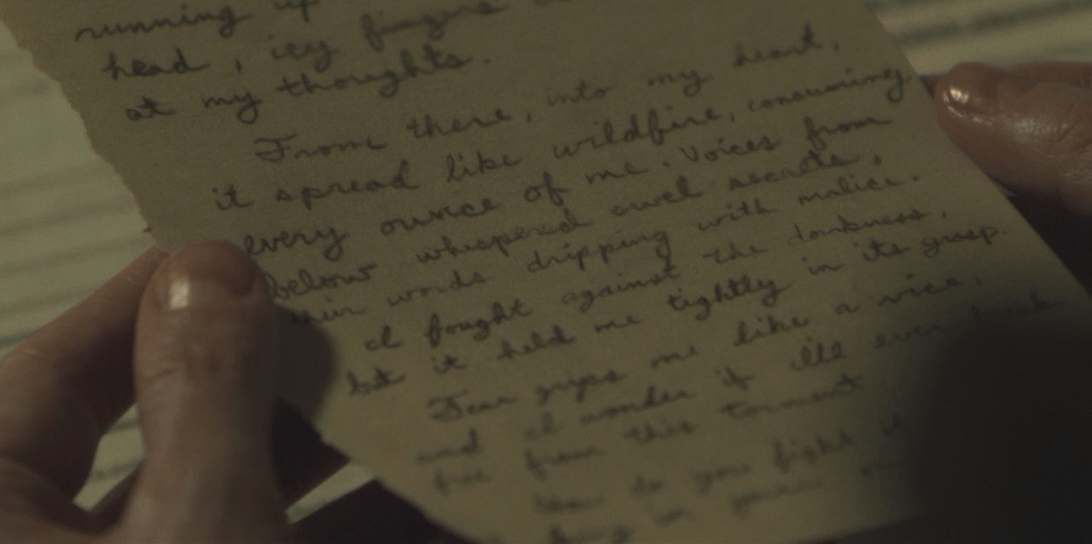 running up
head, icy fingers
at my thoughts.
From there, into my heart,
it spread like wildfire, consuming
every ounce of me. Voices from
below whispered cruel secrets,
words dripping with malice.
I fought against the darkness,
but it held me tightly in its grasp.
Fear grips me like a vice,
and I wonder if I'll ever break
free from this torment.
do you fight it